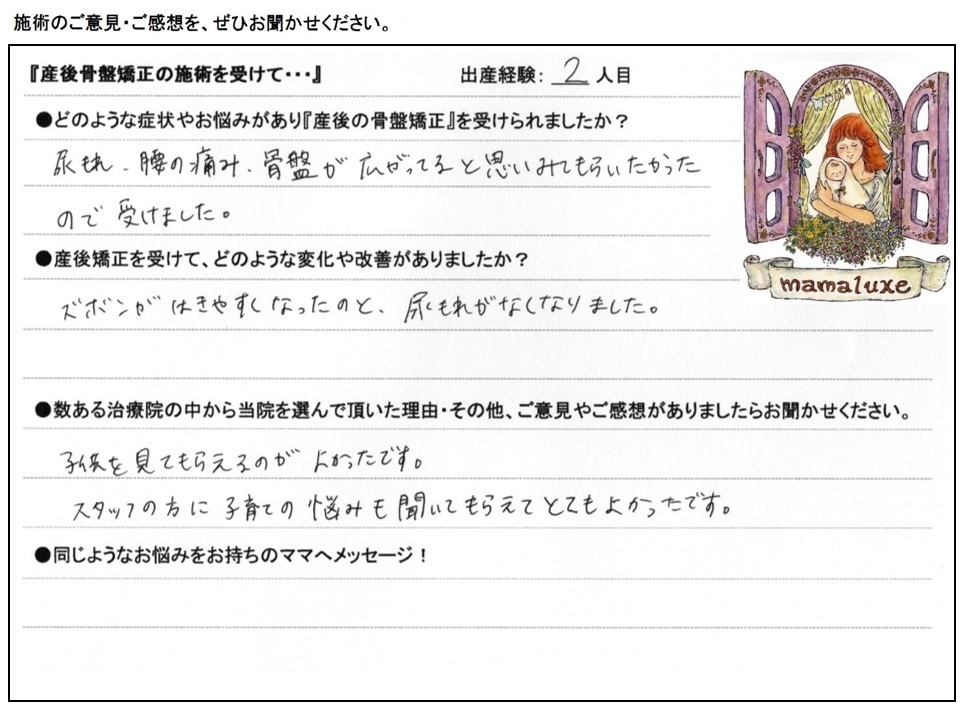 施術のご意見・ご感想を、ぜひお聞かせください。
『産後骨盤矯正の施術を受けて・・・』 出産経験: 2 人目
●どのような症状やお悩みがあり『産後の骨盤矯正』を受けられましたか？
尿もれ、腰の痛み、骨盤が広がってると思いみてもらいたかった
ので受けました。
●産後矯正を受けて、どのような変化や改善がありましたか？
ズボンがはきやすくなったのと、尿もれがなくなりました。
mamaluxe
●数ある治療院の中から当院を選んで頂いた理由・その他、ご意見やご感想がありましたらお聞かせください。
子供を見てもらえるのがよかったです。
スタッフの方に子育ての悩みも聞いてもらえてとてもよかったです。
●同じようなお悩みをお持ちのママへメッセージ！